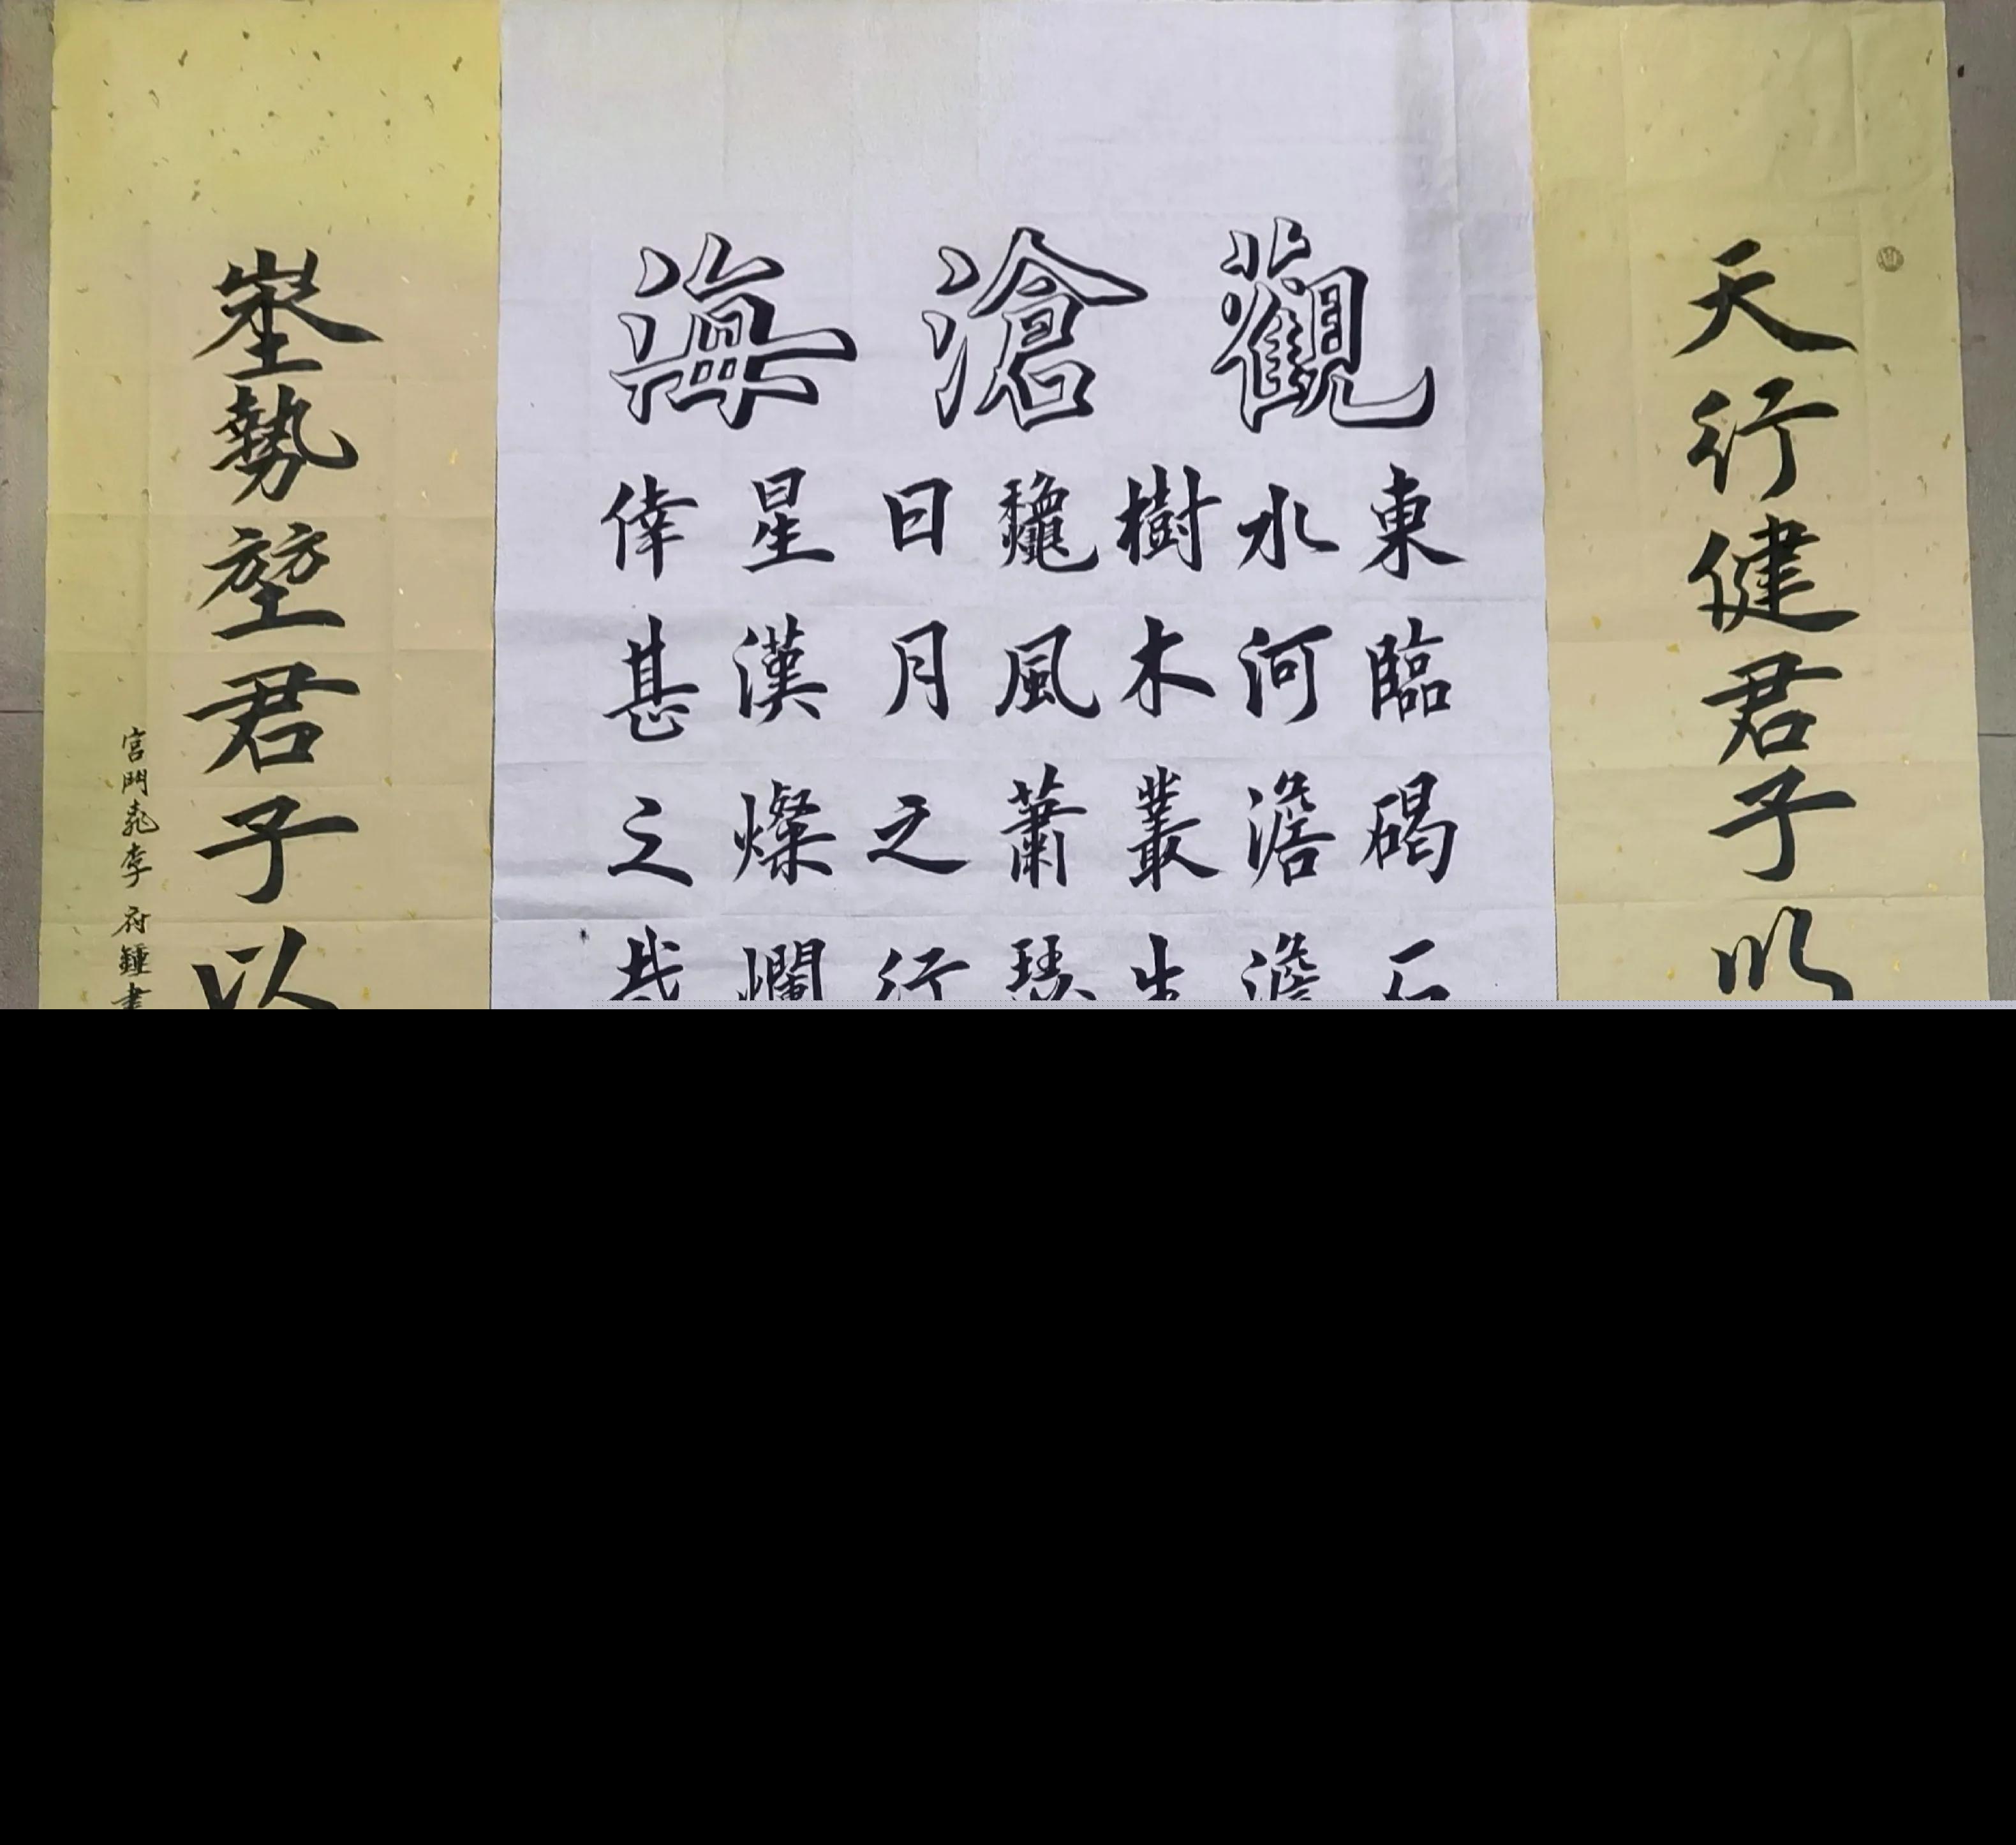 天行健君子以
觀滄海
東臨碣石
水河澹澹
樹木叢生
龝風蕭瑟
日月之行
星漢燦爛
倖甚之哉
埊勢堃君子以
宮門李 府鍾書